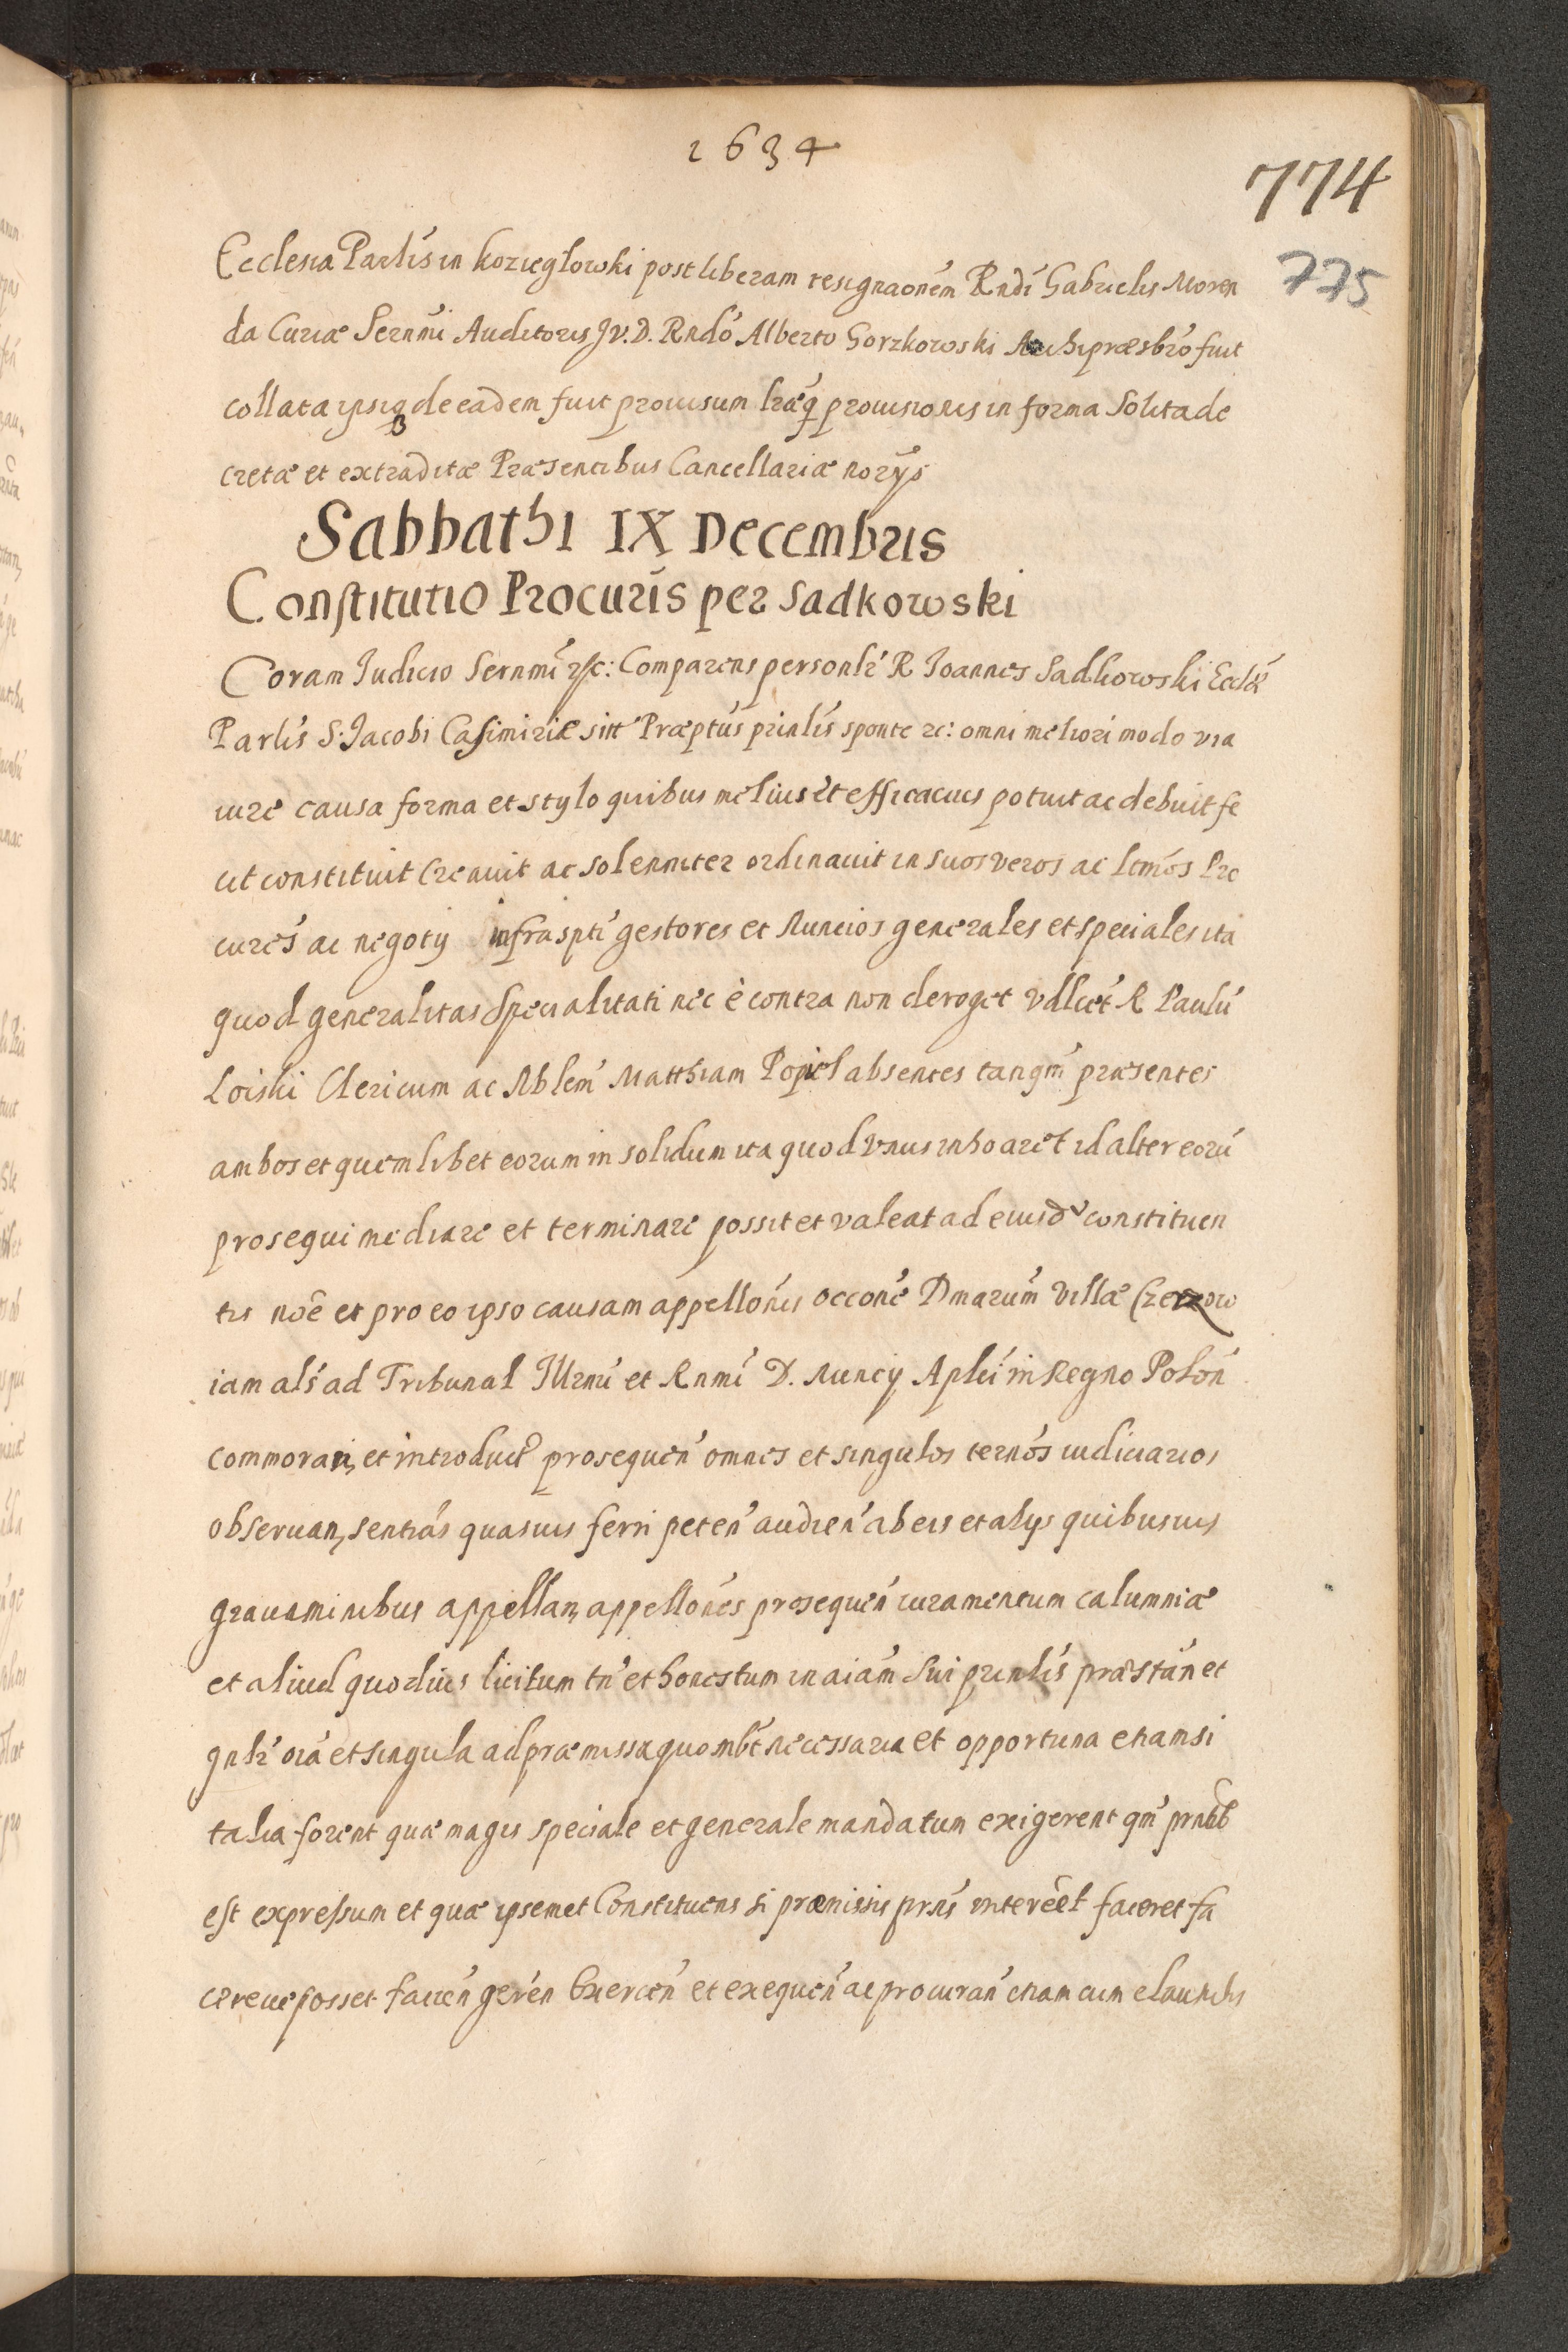 1634
774
775
Ecclesia Parlis in Koziegłowki post liberam resignaonem Rndi Gabrielis Moren
da Curiæ Sernmi Auditoris Jv. D. Rndo Alberto Gorzkowski Archipræsbro fuit
collata ipsiq de eadem fuit prouisum lræq prouisionis in forma Solita de
cretæ et extraditæ Præsentibus Cancellariæ norijs
Sabbathi IX Decembris
Constitutio Procuris per Sadkowski
Coram Iudicio Sernmi etc: Comparens personlr R Ioannes Sadkowski Ecclæ
Parlis S. Jacobi Casimiriæ sitt Præptus prinlis sponte etc: omni meliori modo via
iure causa forma et stylo quibus melius et efficacius potuit ac debuit fe
cit constituit Creauit ac solenniter ordinauit in suos veros ac ltmos Pro
cures ac negotij infraspti gestores et Nuncios generales et speciales ita
quod generalitas Specialitati nec è contra non deroget vdlicet R Paulu
Loiski Clericum ac Nblem Matthiam Popiel absentes tanqm præsentes
ambos et quemlibet eorum in solidum ita quod vnus inhoaret id alter eoru
prosequi mediare et terminare possit et valeat ad eiusd constituen
tis noe et pro eo ipso causam appellonis occone Dmarum villæ Czerzow
iam als ad Tribunal Illrmi et Rnmi D. Nuncij Aplici in Regno Polon
commoran, et introduct prosequen omnes et singulos termos iudiciarios
obseruan, sentias quasuis ferri peten audien ab eis et alijs quibusuis
grauaminibus appellan, appellones prosequen iuramentum calumniæ
et aliud quoduis licitum tn et honestum in aiam sui prinlis præstan et
gnlr oia et singula ad præmissa quombt necessaria et opportuna etiamsi
talia forent quæ magis speciale et generale mandatum exigerent qm prntib
est expressum et quæ ipsemet Constituens si præmissis prns intereet faceret fa
cereue posset facien geren Exercen et exequen ac procuran etiam cum clausulis